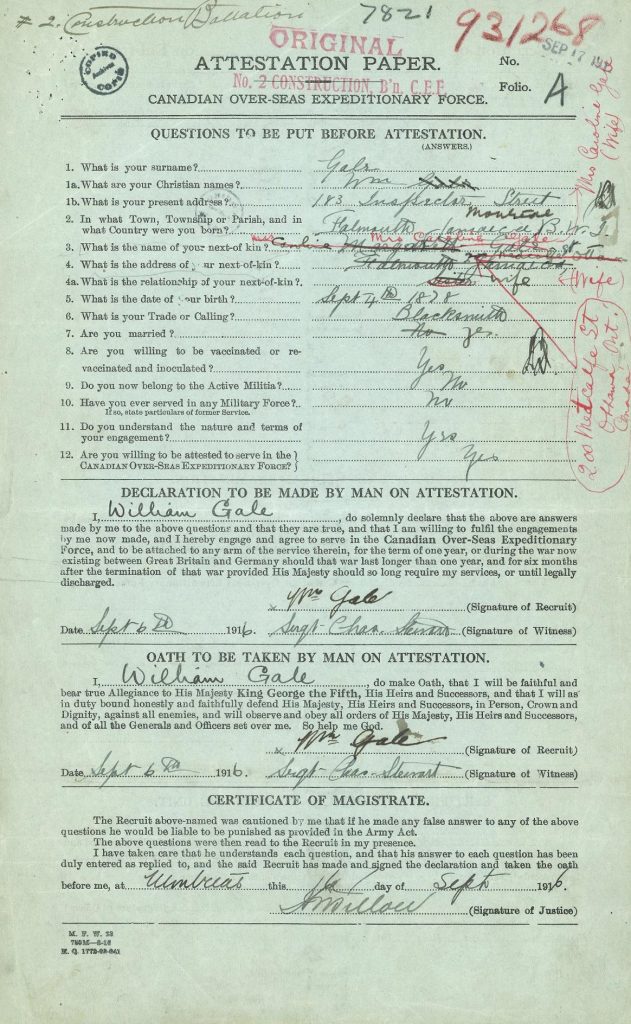 # 2. Construction Battalion
7821
931268
ORIGINAL
SEP 17
COPIED
COPIÉ
ATTESTATION PAPER.
No.
No. 2 CONSTRUCTION, B'n, C.E.F.
Folio. A
CANADIAN OVER-SEAS EXPEDITIONARY FORCE.
Mrs Caroline Gale
(Wife)
QUESTIONS TO BE PUT BEFORE ATTESTATION.
(ANSWERS.)
1. What is your surname? Gale
1a. What are your Christian names? Wm
1b. What is your present address? 183 Inspector Street
Montreal
2. In what Town, Township or Parish, and in
what Country were you born? Falmouth Jamaica B.W.I.
Mrs Caroline Gale
3. What is the name of your next-of-kin?
4. What is the address of your next-of-kin? Falmouth Jamaica
4a. What is the relationship of your next-of-kin? Wife
(Wife)
5. What is the date of your birth? Sept 4th 1878
6. What is your Trade or Calling? Blacksmith
7. Are you married? No yes.
200 Metcalfe St
Ottawa Ont.
Canada
8. Are you willing to be vaccinated or re-
vaccinated and inoculated? Yes
9. Do you now belong to the Active Militia? No
10. Have you ever served in any Military Force? No
If so, state particulars of former Service.
11. Do you understand the nature and terms of
your engagement? Yes
12. Are you willing to be attested to serve in the
CANADIAN OVER-SEAS EXPEDITIONARY FORCE? Yes
DECLARATION TO BE MADE BY MAN ON ATTESTATION.
I, William Gale, do solemnly declare that the above are answers
made by me to the above questions and that they are true, and that I am willing to fulfil the engagements
by me now made, and I hereby engage and agree to serve in the Canadian Over-Seas Expeditionary
Force, and to be attached to any arm of the service therein, for the term of one year, or during the war now
existing between Great Britain and Germany should that war last longer than one year, and for six months
after the termination of that war provided His Majesty should so long require my services, or until legally
discharged.
x Wm Gale (Signature of Recruit)
Date Sept 6th 1916 Sergt Chas Stewart (Signature of Witness)
OATH TO BE TAKEN BY MAN ON ATTESTATION.
I, William Gale, do make Oath, that I will be faithful and
bear true Allegiance to His Majesty King George the Fifth, His Heirs and Successors, and that I will as
in duty bound honestly and faithfully defend His Majesty, His Heirs and Successors, in Person, Crown and
Dignity, against all enemies, and will observe and obey all orders of His Majesty, His Heirs and Successors,
and of all the Generals and Officers set over me. So help me God.
x Wm Gale (Signature of Recruit)
Date Sept 6th 1916 Sergt Chas Stewart (Signature of Witness)
CERTIFICATE OF MAGISTRATE.
The Recruit above-named was cautioned by me that if he made any false answer to any of the above
questions he would be liable to be punished as provided in the Army Act.
The above questions were then read to the Recruit in my presence.
I have taken care that he understands each question, and that his answer to each question has been
duly entered as replied to, and the said Recruit has made and signed the declaration and taken the oath
before me, at this day of Sept 1916.
(Signature of Justice)
M. F. W. 23
H. Q. 1772-39-841